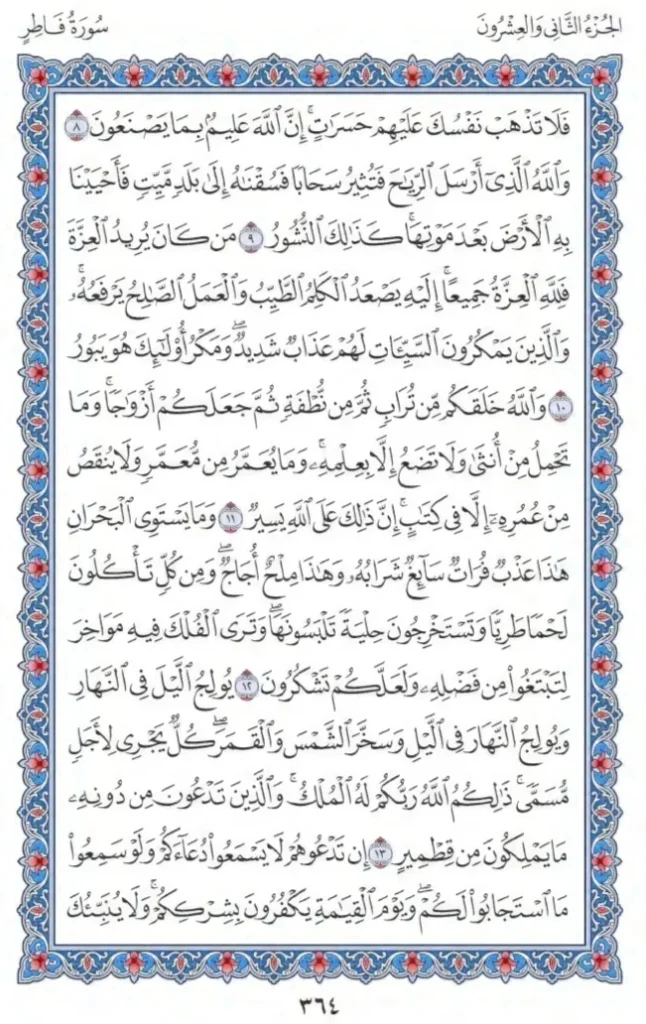 الجُزْءُ الثَّانِي وَالعِشْرُونَ
سُورَةُ فَاطِرٍ
فَلَا تَذْهَبْ نَفْسُكَ عَلَيْهِمْ حَسَرَٰتٍ ۚ إِنَّ ٱللَّهَ عَلِيمٌۢ بِمَا يَصْنَعُونَ ٨
وَٱللَّهُ ٱلَّذِىٓ أَرْسَلَ ٱلرِّيَٰحَ فَتُثِيرُ سَحَابًا فَسُقْنَٰهُ إِلَىٰ بَلَدٍ مَّيِّتٍ فَأَحْيَيْنَا
بِهِ ٱلْأَرْضَ بَعْدَ مَوْتِهَا ۚ كَذَٰلِكَ ٱلنُّشُورُ ٩ مَن كَانَ يُرِيدُ ٱلْعِزَّةَ
فَلِلَّهِ ٱلْعِزَّةُ جَمِيعًا ۚ إِلَيْهِ يَصْعَدُ ٱلْكَلِمُ ٱلطَّيِّبُ وَٱلْعَمَلُ ٱلصَّٰلِحُ يَرْفَعُهُۥ ۚ
وَٱلَّذِينَ يَمْكُرُونَ ٱلسَّيِّـَٔاتِ لَهُمْ عَذَابٌ شَدِيدٌ ۖ وَمَكْرُ أُو۟لَٰٓئِكَ هُوَ يَبُورُ
١٠ وَٱللَّهُ خَلَقَكُم مِّن تُرَابٍ ثُمَّ مِن نُّطْفَةٍ ثُمَّ جَعَلَكُمْ أَزْوَٰجًا ۚ وَمَا
تَحْمِلُ مِنْ أُنثَىٰ وَلَا تَضَعُ إِلَّا بِعِلْمِهِۦ ۚ وَمَا يُعَمَّرُ مِن مُّعَمَّرٍ وَلَا يُنقَصُ
مِنْ عُمُرِهِۦٓ إِلَّا فِى كِتَٰبٍ ۚ إِنَّ ذَٰلِكَ عَلَى ٱللَّهِ يَسِيرٌ ١١ وَمَا يَسْتَوِى ٱلْبَحْرَانِ
هَٰذَا عَذْبٌ فُرَاتٌ سَآئِغٌ شَرَابُهُۥ وَهَٰذَا مِلْحٌ أُجَاجٌ ۖ وَمِن كُلٍّ تَأْكُلُونَ
لَحْمًا طَرِيًّا وَتَسْتَخْرِجُونَ حِلْيَةً تَلْبَسُونَهَا ۖ وَتَرَى ٱلْفُلْكَ فِيهِ مَوَاخِرَ
لِتَبْتَغُوا۟ مِن فَضْلِهِۦ وَلَعَلَّكُمْ تَشْكُرُونَ ١٢ يُولِجُ ٱلَّيْلَ فِى ٱلنَّهَارِ
وَيُولِجُ ٱلنَّهَارَ فِى ٱلَّيْلِ وَسَخَّرَ ٱلشَّمْسَ وَٱلْقَمَرَ ۖ كُلٌّ يَجْرِى لِأَجَلٍ
مُّسَمًّى ۚ ذَٰلِكُمُ ٱللَّهُ رَبُّكُمْ لَهُ ٱلْمُلْكُ ۚ وَٱلَّذِينَ تَدْعُونَ مِن دُونِهِۦ
مَا يَمْلِكُونَ مِن قِطْمِيرٍ ١٣ إِن تَدْعُوهُمْ لَا يَسْمَعُوا۟ دُعَآءَكُمْ وَلَوْ سَمِعُوا۟
مَا ٱسْتَجَابُوا۟ لَكُمْ ۖ وَيَوْمَ ٱلْقِيَٰمَةِ يَكْفُرُونَ بِشِرْكِكُمْ ۚ وَلَا يُنَبِّئُكَ
٣٦٤